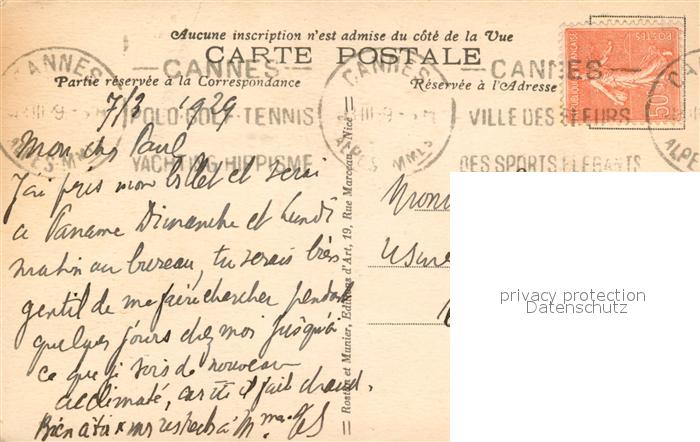 Aucune inscription n'est admise du côté de la Vue
CARTE POSTALE
Partie réservée à la Correspondance
Réservée à l'Adresse
CANNES
POLO GOLF TENNIS
YACHTING HIPPISME
CANNES
ALPES MMES
CANNES
VILLE DES FLEURS
DES SPORTS ELEGANTS
REPUBLIQUE FRANÇAISE
POSTES
50
7/3 1929
Mon cher Paul
J'ai pris mon billet et serai
a Paname Dimanche et Lundi
matin au bureau, tu serais bien
gentil de me faire chercher pendant
quelques jours chez moi jusqu'à
ce que je sois de nouveau
acclimaté, car ici il fait chaud.
Bien à toi x mes respects à Mme
Rostan et Munier, Editions d'Art, 19, Rue Marceau, Nice
privacy protection
Datenschutz